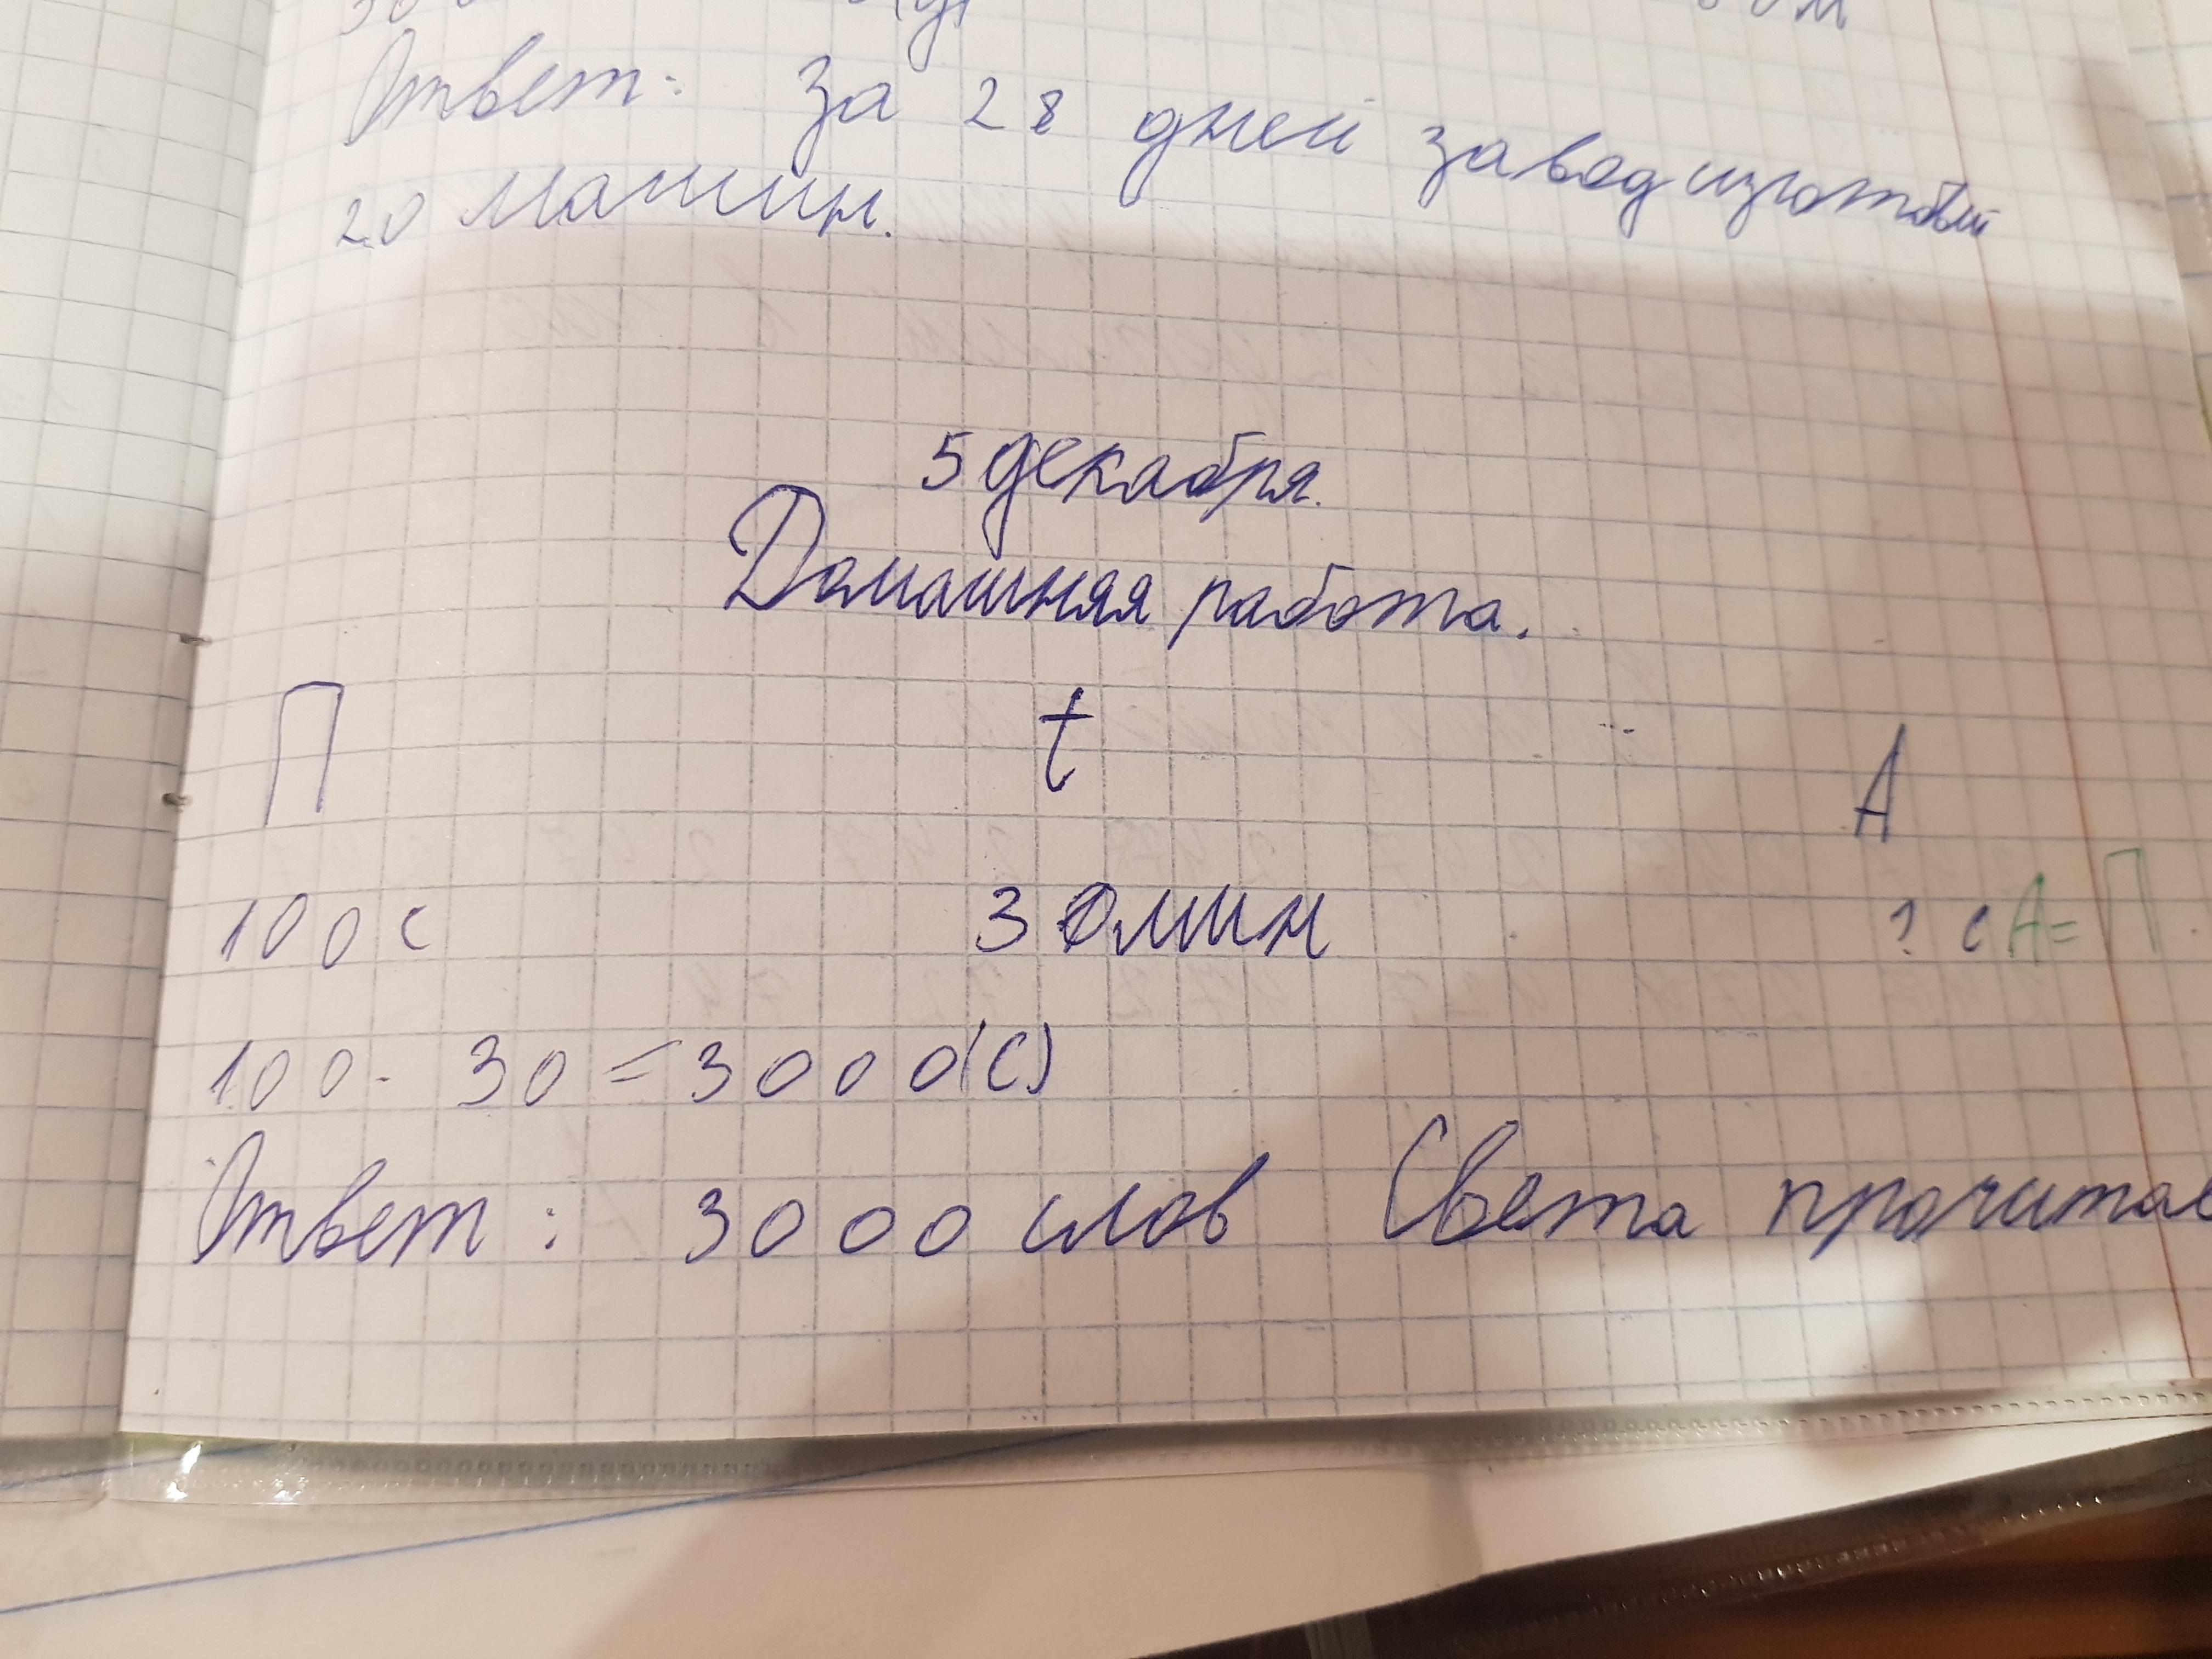 Ответ: За 28 дней завод изготовил
20 машин.
5 декабря.
Домашняя работа.
П t А
100 с 30 мин ? с А = П.
100 · 30 = 3000 (с)
Ответ: 3000 слов Света прочитае